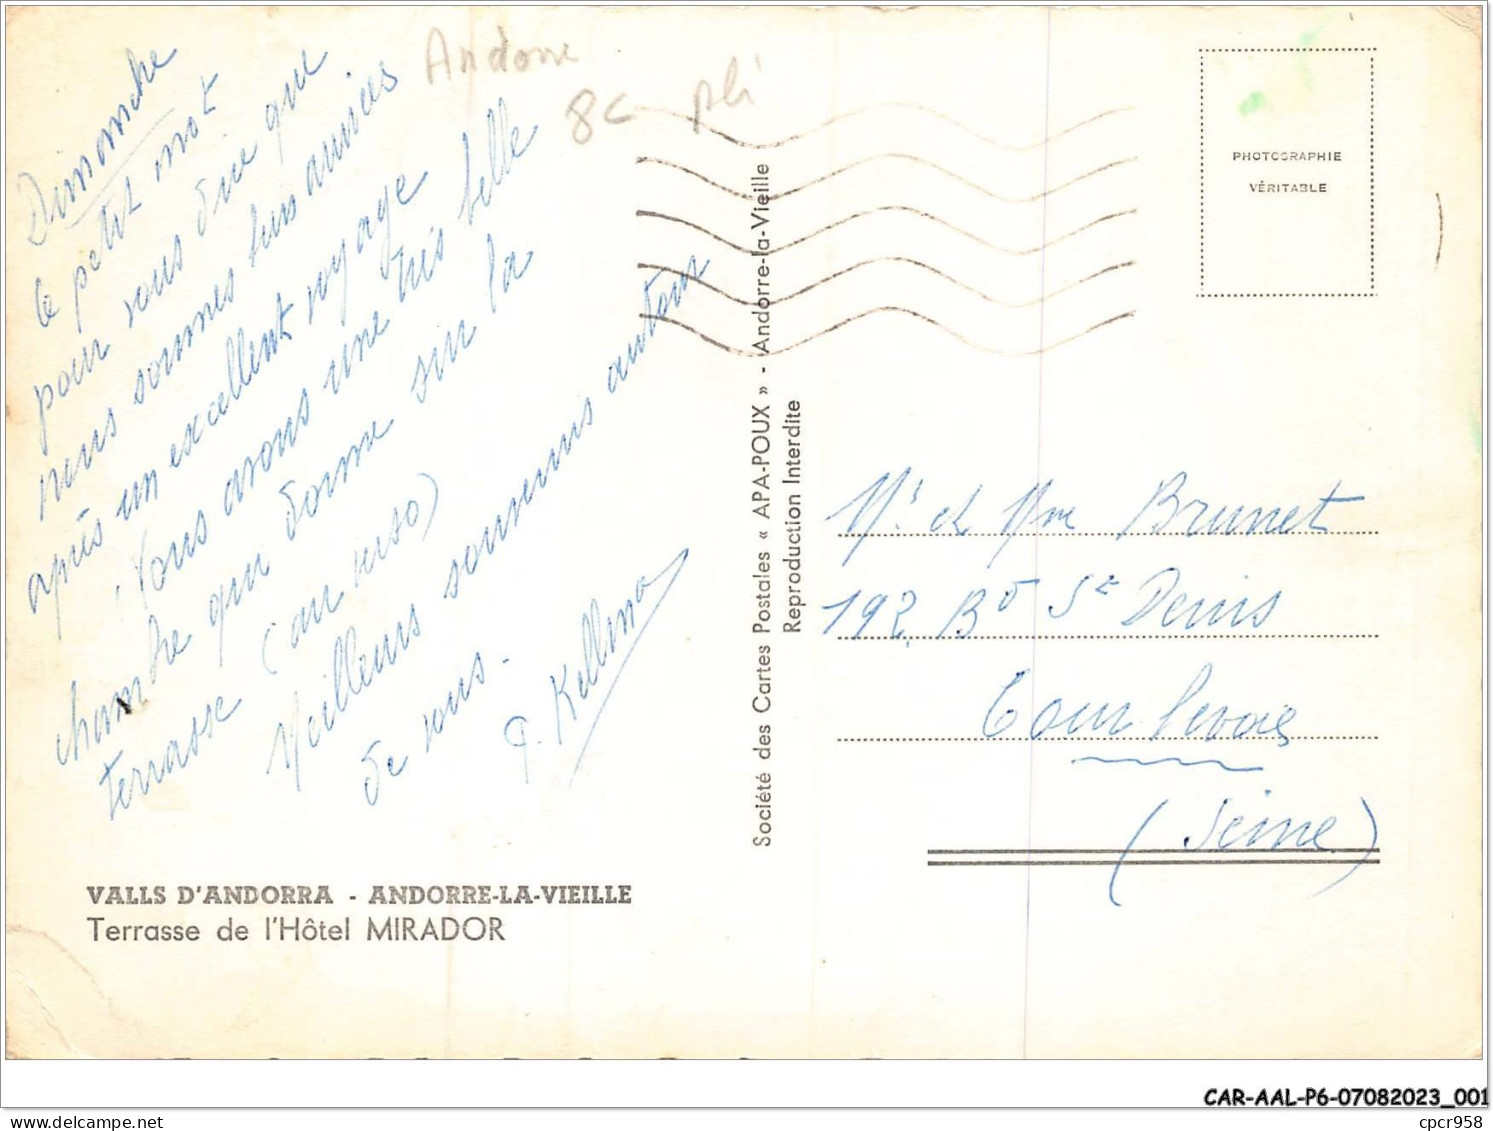 Andorre
8c pli
Dimanche
le petit mot
pour vous dire que
nous sommes bien arrivées
après un excellent voyage
(Nous avons une très belle
chambre qui donne sur la
terrasse (au verso)
Meilleurs souvenirs autour
de vous.
VALLS D'ANDORRA - ANDORRE-LA-VIEILLE
Terrasse de l'Hôtel MIRADOR
Société des Cartes Postales « APA-POUX » - Andorre-la-Vieille
Reproduction Interdite
PHOTOGRAPHIE
VÉRITABLE
Mr et Mme Brunet
192 Bd St Denis
Courbevoie
(Seine)
CAR-AAL-P6-07082023_001
delcampe.net
cpcr958